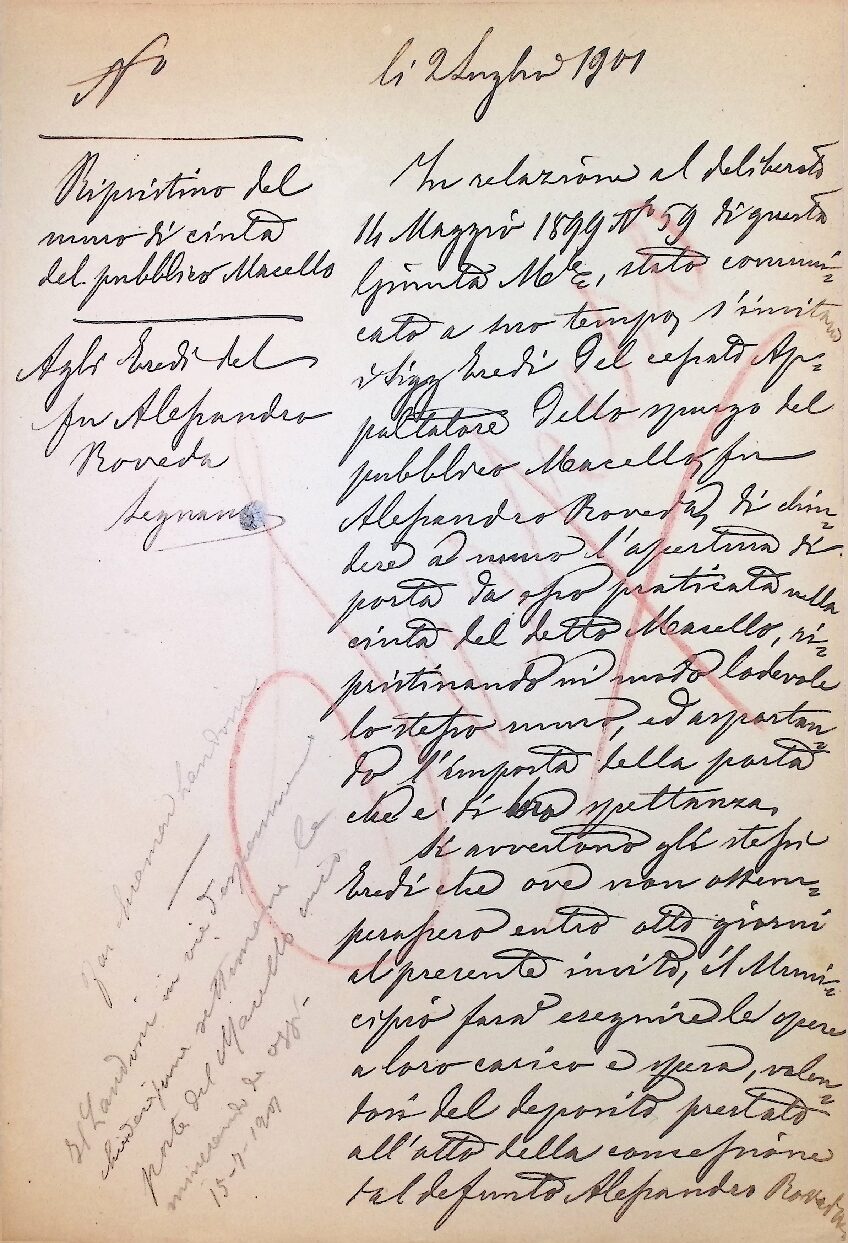 No
li 2 Luglio 1901
Ripristino del
muro di cinta
del pubblico Macello
Agli Eredi del
fu Alessandro
Roveda
Legnano
In relazione al deliberato
14 Maggio 1899 No 59 di questa
Giunta Mle, stato comuni-
cato a suo tempo, s'invitano
i Sigg Eredi del cessato Ap-
paltatore dello spurgo del
pubblico Macello, fu
Alessandro Roveda, di chiu-
dere a muro l'apertura di
porta da esso praticata nella
cinta del detto Macello, ri-
pristinando in modo lodevole
lo stesso muro, ed asportan-
do l'imposta della porta
che è di loro spettanza.
Si avvertono gli stessi
Eredi che ove non ottem-
perassero entro otto giorni
al presente invito, il Muni-
cipio farà eseguire le opere
a loro carico e spesa, valen-
dosi del deposito prestato
all'atto della concessione
dal defunto Alessandro Roveda.
Landoni
Il Landoni in via d'esperimento
settimane le
porte del Macello
minciando da oggi.
15-7-1901